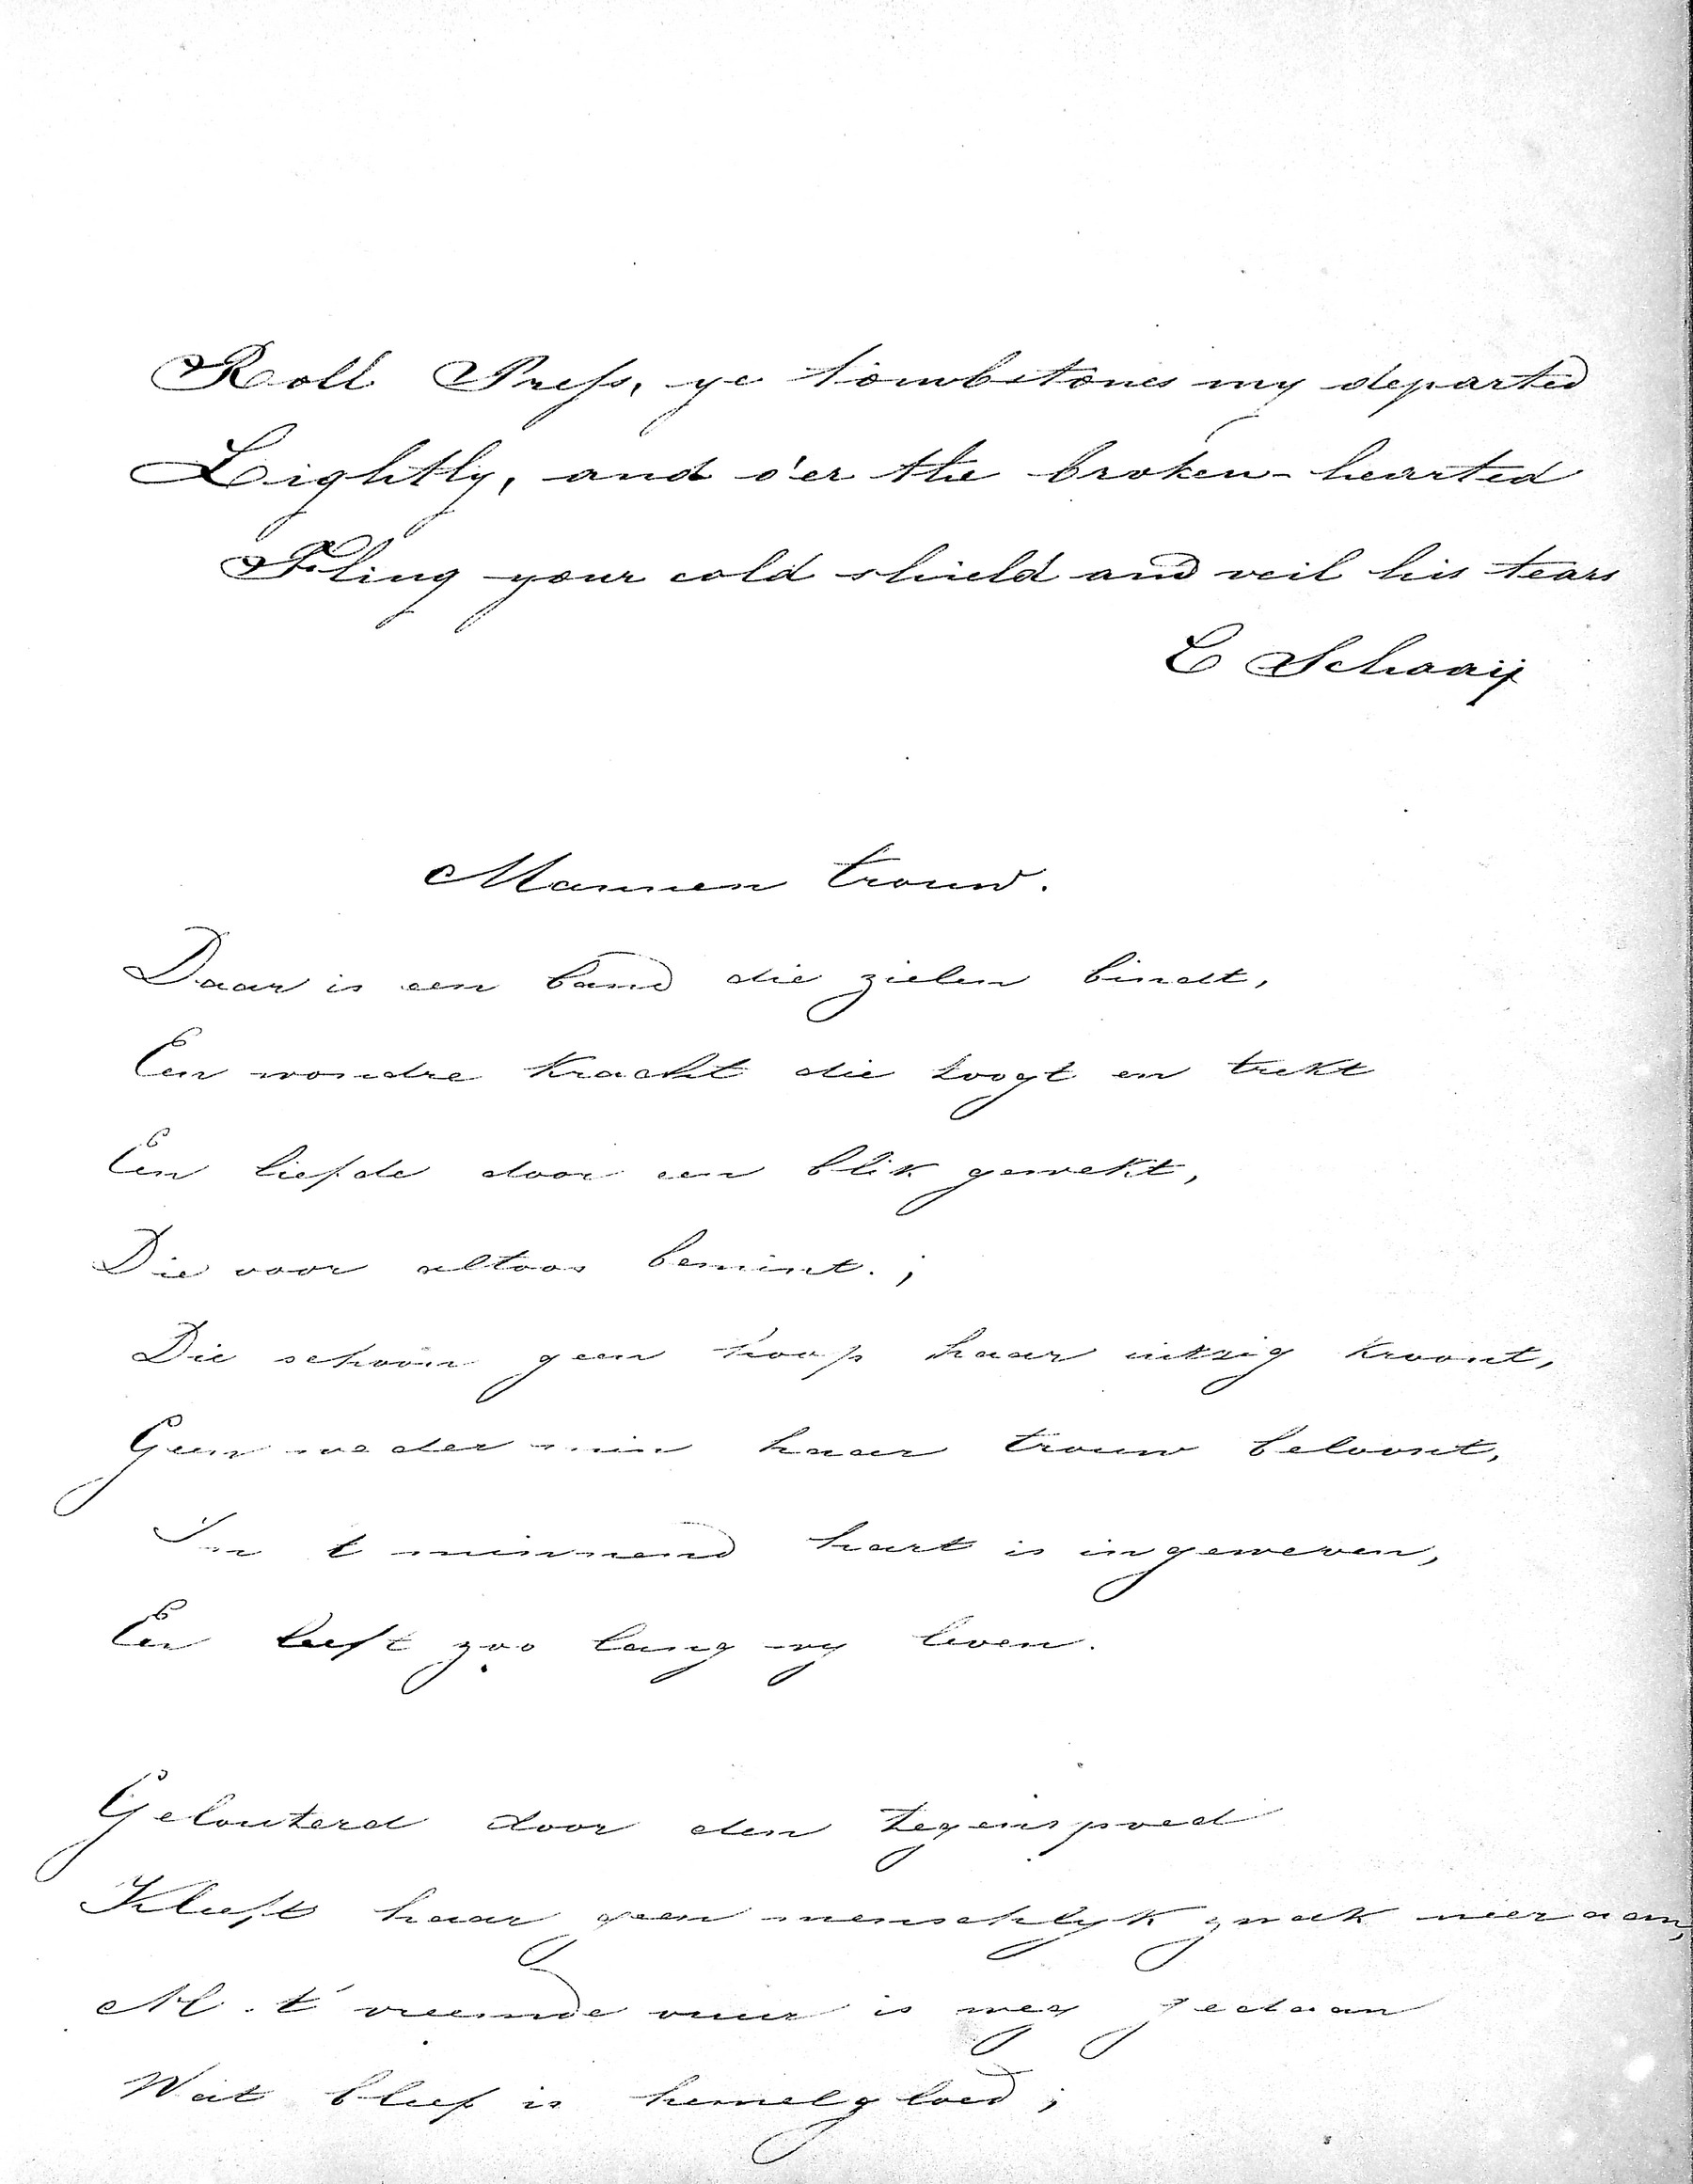 Roll Press, ye tombstones my departed
Lightly, and o'er the broken-hearted
Fling your cold shield and veil his tears
C Schaaij
Mannen trouw.
Daar is een band die zielen bindt,
Een wondre kracht die toogt en trekt
Een liefde door een blik gewekt,
Die voor altoos bemint.;
Die schoon geen hoop haar uitzig kroont,
Geen weder min haar trouw beloont,
In t minnend hart is ingeweven,
En leeft zoo lang wy leven.
Gelouterd door den tegenspoed
Kleeft haar geen menschlyk zwak meer aan,
Al t vreemde vuur is weg gedaan
Wat bleef is hemelgloed;